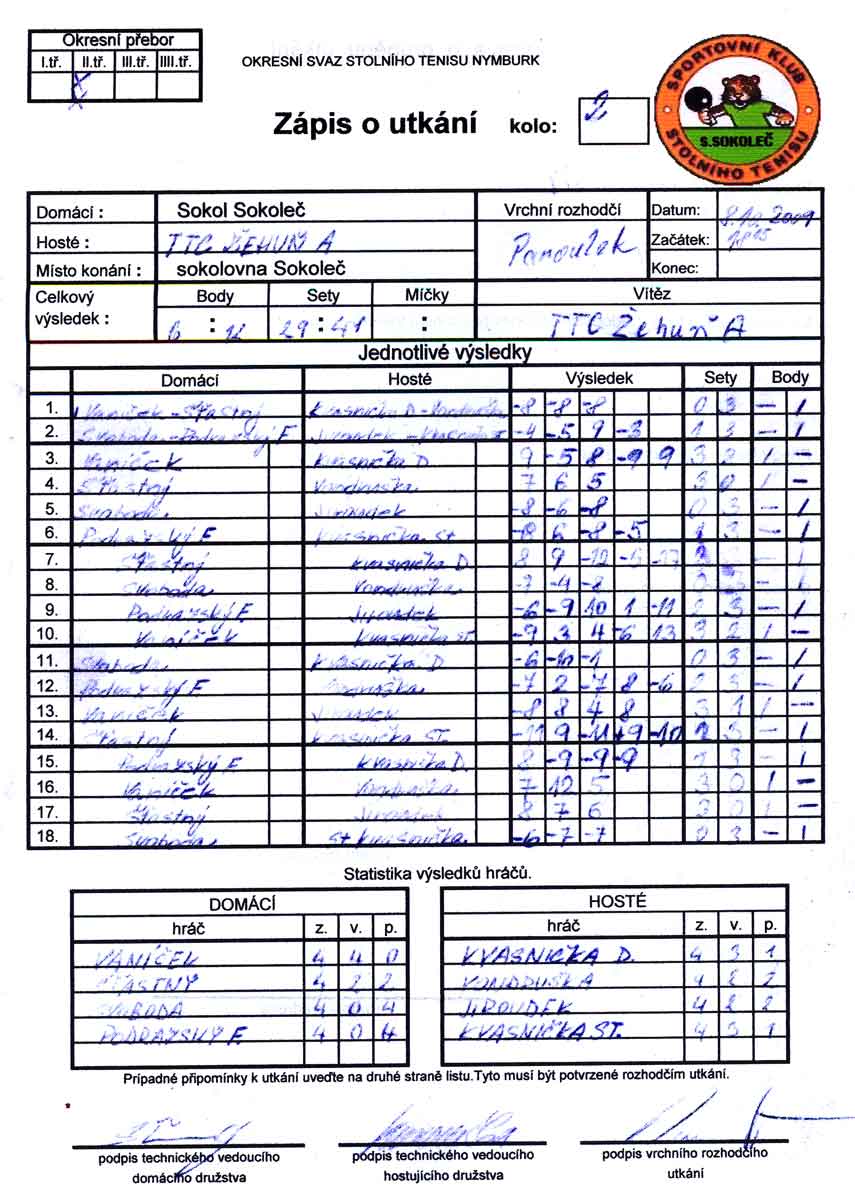 Okresní přebor
I.tř. II.tř. III.tř. IIII.tř.
X
OKRESNÍ SVAZ STOLNÍHO TENISU NYMBURK
Zápis o utkání kolo: 2
SPORTOVNÍ KLUB
S.SOKOLEČ
STOLNÍHO TENISU
Domácí : Sokol Sokoleč Vrchní rozhodčí Datum: 8.10. 2009
Hosté : TTC ŽEHUŇ A Panoušek Začátek:
Místo konání : sokolovna Sokoleč Konec:
Celkový výsledek : Body Sety Míčky Vítěz
6 : 12 29 : 41 : TTC Žehuň A
Jednotlivé výsledky
Domácí Hosté Výsledek Sety Body
1. Vaníček - Šťastný Kvasnička D - Vondruška -8 -8 -8 0 3 - 1
2. Svoboda - Podrazský F Jiroudek - Kvasnička st -4 -5 9 -3 1 3 - 1
3. Vaníček Kvasnička D 9 -5 8 -9 9 3 2 1 -
4. Šťastný Vondruška 7 6 5 3 0 1 -
5. Svoboda Jiroudek -8 -6 -8 0 3 - 1
6. Podrazský F Kvasnička st -10 6 -8 -5 1 3 - 1
7. Šťastný Kvasnička D. 8 9 -12 2 3 - 1
8. Svoboda Vondruška -4 -8 0 3 - 1
9. Podrazský F. Jiroudek -6 -9 10 1 -11 2 3 - 1
10. Vaníček Kvasnička st. -9 3 4 -6 13 3 2 1 -
11. Svoboda Kvasnička D -6 -10 -1 0 3 - 1
12. Podrazský F Vondruška -7 2 -7 8 -6 2 3 - 1
13. Vaníček Jiroudek -8 8 4 8 3 1 1 -
14. Šťastný Kvasnička ST. -11 9 -11 +9 -10 2 3 - 1
15. Podrazský F. Kvasnička D. 8 -9 -9 -9 1 3 - 1
16. Vaníček Vondruška 7 12 5 3 0 1 -
17. Šťastný Jiroudek 8 7 6 3 0 1 -
18. Svoboda st Kvasnička -6 -7 -7 0 3 - 1
Statistika výsledků hráčů.
DOMÁCÍ HOSTÉ
hráč z. v. p. hráč z. v. p.
VANÍČEK 4 4 0 KVASNIČKA D. 4 3 1
ŠŤASTNÝ 4 2 2 VONDRUŠKA 4 2 2
SVOBODA 4 0 4 JIROUDEK 4 2 2
PODRAZSKÝ F. 4 0 4 KVASNIČKA ST. 4 3 1
Prípadné připomínky k utkání uveďte na druhé straně listu.Tyto musí být potvrzené rozhodčím utkání.
podpis technického vedoucího domácího družstva
podpis technického vedoucího hostujícího družstva
podpis vrchního rozhodčího utkání